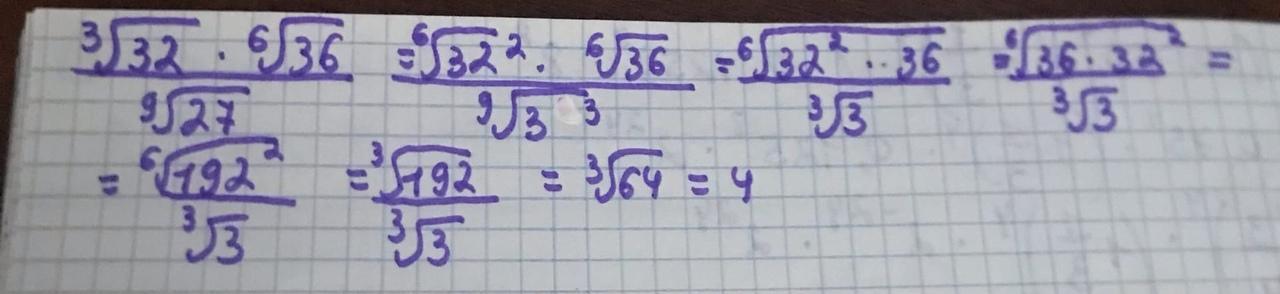 ∛32 · ⁶√36 / ⁹√27 = ⁶√32² · ⁶√36 / ⁹√3³ = ⁶√(32² ·· 36) / ∛3 = ⁶√(36 · 32²) / ∛3 =
= ⁶√192² / ∛3 = ∛192 / ∛3 = ∛64 = 4